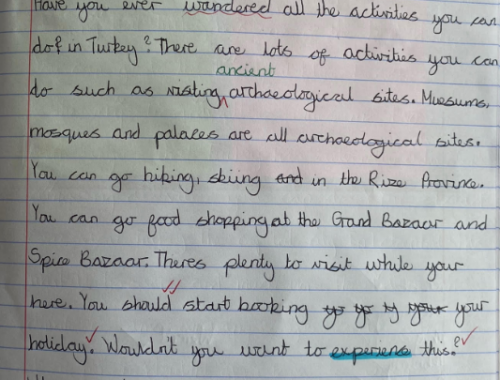 Have you ever wandered all the activities you can
do? in Turkey? There are lots of activities you can
ancient
do such as visting archaeological sites. Muesums,
mosques and palaces are all archaeological sites.
You can go hiking, skiing and in the Rize Province.
You can go food shopping at the Grand Bazaar and
Spice Bazaar. Theres plenty to visit while your
here. You should start booking your your
holiday. Wouldn't you want to experiens this?